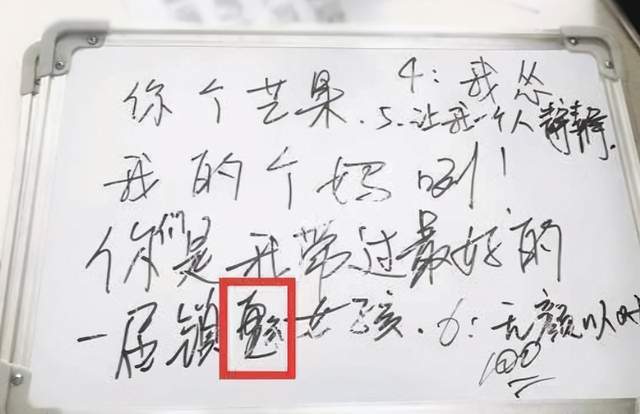 你个芒果. 4:我怂
5.让我一个人静静.
我的个妈咧!
你们是我带过最好的
一届镇女孩. 6:无颜以
100